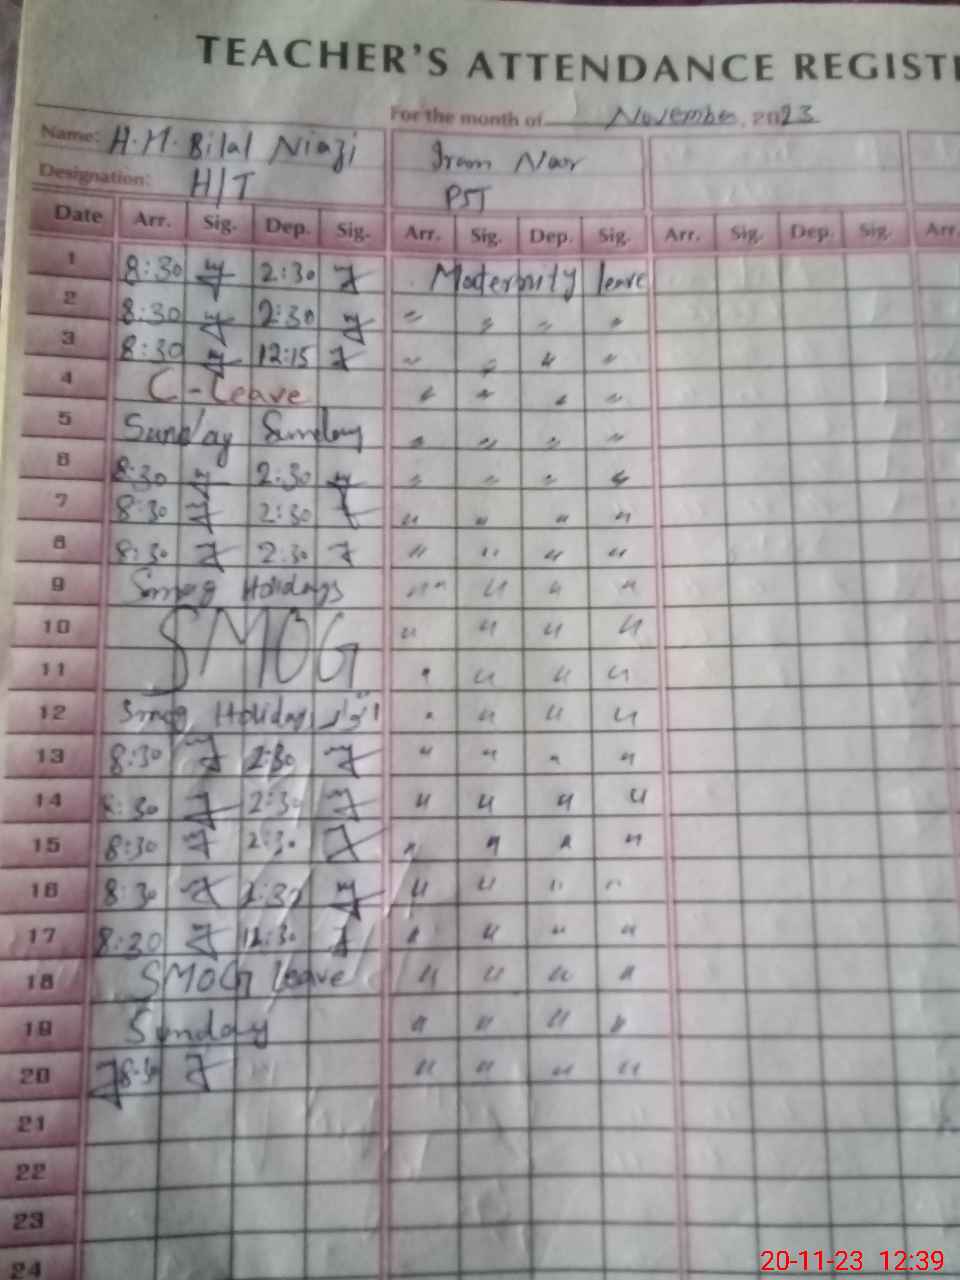 TEACHER'S ATTENDANCE REGISTE
For the month of November, 2023
Name: H.M. Bilal Niazi Iram Naz
Designation: H/T PST
Date Arr. Sig. Dep. Sig. Arr. Sig. Dep. Sig. Arr. Sig. Dep. Sig. Arr.
1 8:30 2:30 Maternity leave
2 8:30 2:30 " " " "
3 8:30 12:15 " " " "
4 C-Leave " " " "
5 Sunday Sunday " " " "
6 8:30 2:30 " " " "
7 8:30 2:30 " " " "
8 8:30 2:30 " " " "
9 Smog Holidays " " " "
10 SMOG " " " "
11 " " " "
12 Smog Holidays اتوار " " " "
13 8:30 2:30 " " " "
14 8:30 2:30 " " " "
15 8:30 2:30 " " " "
16 8:30 2:30 " " " "
17 8:30 12:30 " " " "
18 SMOG leave " " " "
19 Sunday " " " "
20 8:30 " " " "
21
22
23
24
20-11-23 12:39